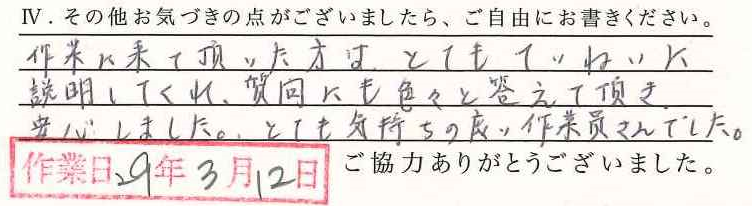 Ⅳ．その他お気づきの点がございましたら、ご自由にお書きください。
作業に来て頂いた方は、とてもていねいに
説明してくれ、質問にも色々と答えて頂き
安心しました。とても気持ちの良い作業員さんでした。
作業日29年3月12日
ご協力ありがとうございました。